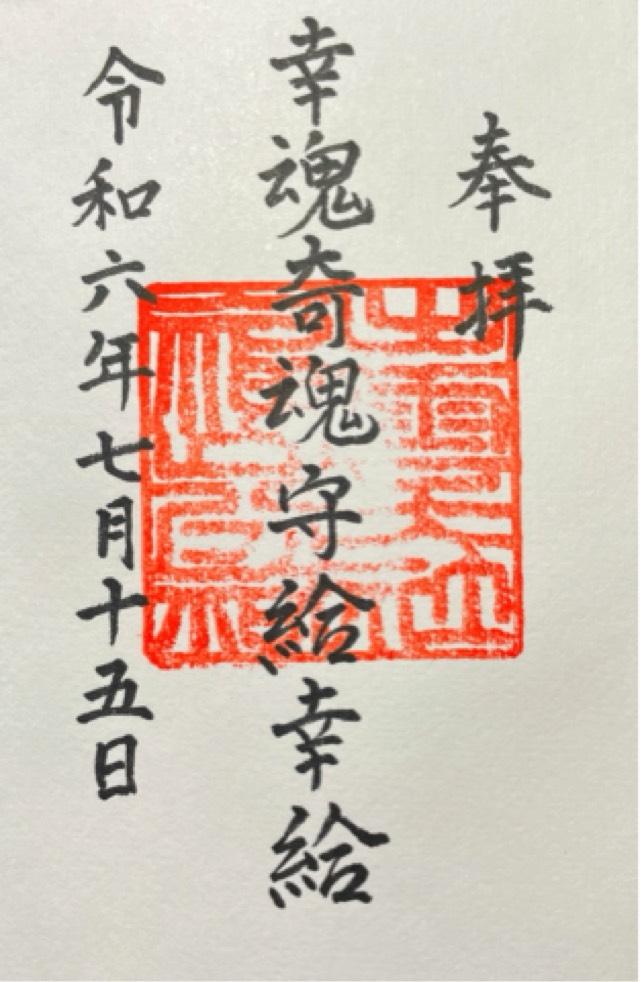 奉拝
幸魂奇魂守給幸給
令和六年七月十五日